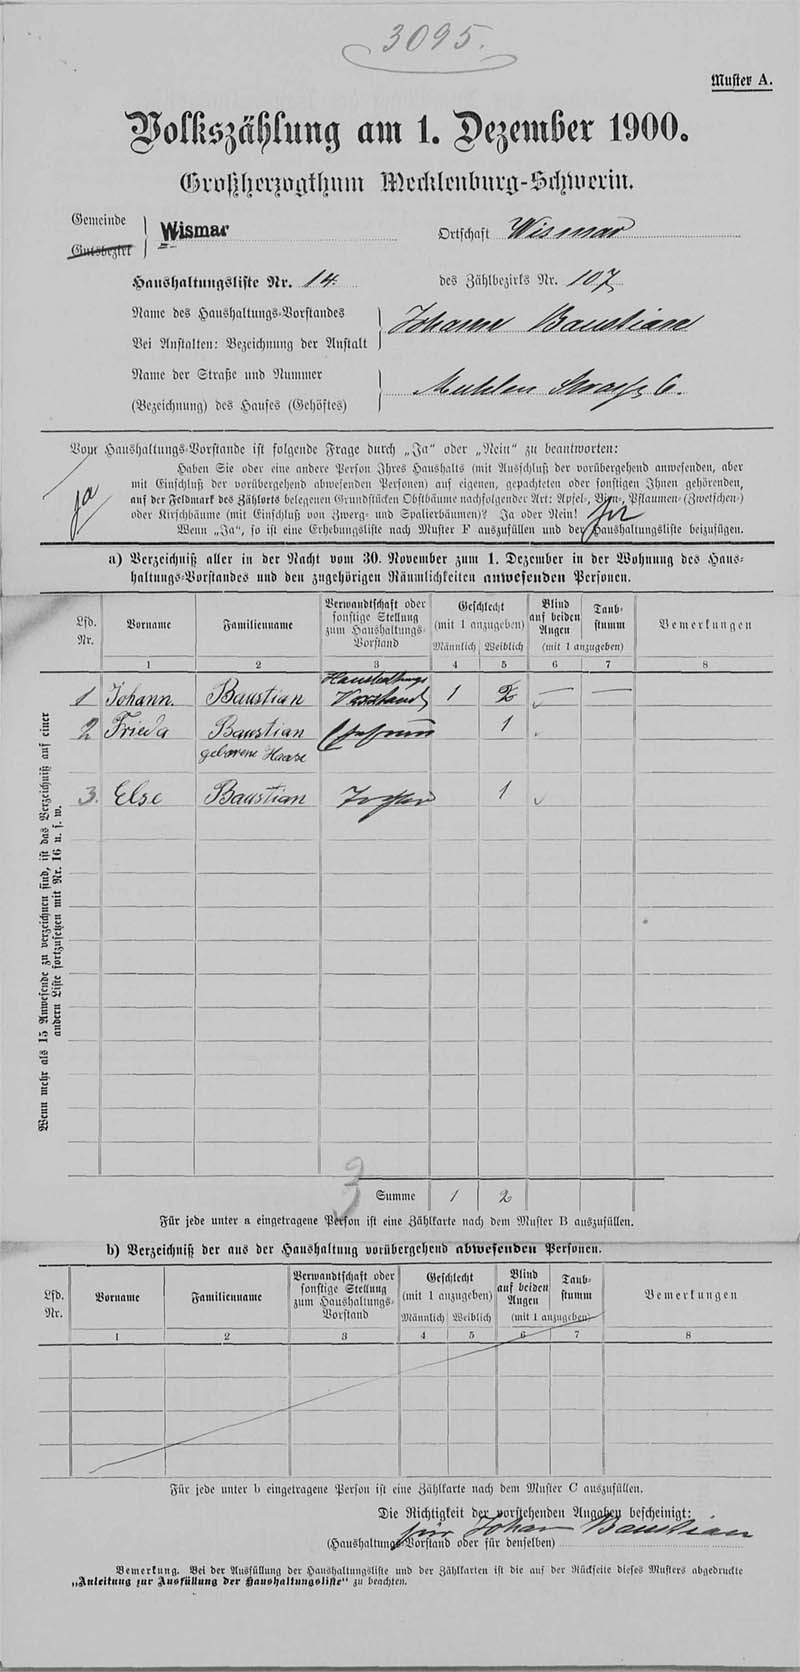 3095.
Muster A.
Volkszählung am 1. Dezember 1900.
Großherzogthum Mecklenburg-Schwerin.
Gemeinde
Gutsbezirk
Wismar
Ortschaft Wismar
Haushaltungsliste Nr. 14. des Zählbezirks Nr. 107
Name des Haushaltungs-Vorstandes
Bei Anstalten: Bezeichnung der Anstalt
Johann Baustian
Name der Straße und Nummer
(Bezeichnung) des Hauses (Gehöftes)
Muhlen Strasse 6.
Vom Haushaltungs-Vorstande ist folgende Frage durch „Ja“ oder „Nein“ zu beantworten:
Haben Sie oder eine andere Person Ihres Haushalts (mit Ausschluß der vorübergehend anwesenden, aber
mit Einschluß der vorübergehend abwesenden Personen) auf eigenen, gepachteten oder sonstigen Ihnen gehörenden,
auf der Feldmark des Zählorts belegenen Grundstücken Obstbäume nachfolgender Art: Apfel-, Birn-, Pflaumen- (Zwetschen-)
oder Kirschbäume (mit Einschluß von Zwerg- und Spalierbäumen)? Ja oder Nein!
Wenn „Ja“, so ist eine Erhebungsliste nach Muster F auszufüllen und der Haushaltungsliste beizufügen.
ja
a) Verzeichniß aller in der Nacht vom 30. November zum 1. Dezember in der Wohnung des Haus-
haltungs-Vorstandes und den zugehörigen Räumlichkeiten anwesenden Personen.
Lfd. Nr.
Vorname
Familienname
Verwandtschaft oder
sonstige Stellung
zum Haushaltungs-
Vorstand
Geschlecht
(mit 1 anzugeben)
Männlich Weiblich
Blind
auf beiden
Augen
Taub-
stumm
(mit 1 anzugeben)
Bemerkungen
1 2 3 4 5 6 7 8
1 Johann. Baustian Haushaltungs Vorstand 1 — —
2 Frieda Baustian Ehefrau 1
geborene Haase
3. Else Baustian Tochter 1
Wenn mehr als 15 Anwesende zu verzeichnen sind, ist das Verzeichniß auf einer
andern Liste fortzusetzen mit Nr. 16 u. s. w.
3
Summe 1 2
Für jede unter a eingetragene Person ist eine Zählkarte nach dem Muster B auszufüllen.
b) Verzeichniß der aus der Haushaltung vorübergehend abwesenden Personen.
Lfd. Nr.
Vorname
Familienname
Verwandtschaft oder
sonstige Stellung
zum Haushaltungs-
Vorstand
Geschlecht
(mit 1 anzugeben)
Männlich Weiblich
Blind
auf beiden
Augen
Taub-
stumm
(mit 1 anzugeben)
Bemerkungen
1 2 3 4 5 6 7 8
Für jede unter b eingetragene Person ist eine Zählkarte nach dem Muster C auszufüllen.
Die Richtigkeit der vorstehenden Angaben bescheinigt:
für Johan Baustian
(Haushaltungs-Vorstand oder für denselben)
Bemerkung. Bei der Ausfüllung der Haushaltungsliste und der Zählkarten ist die auf der Rückseite dieses Musters abgedruckte
„Anleitung zur Ausfüllung der Haushaltungsliste“ zu beachten.